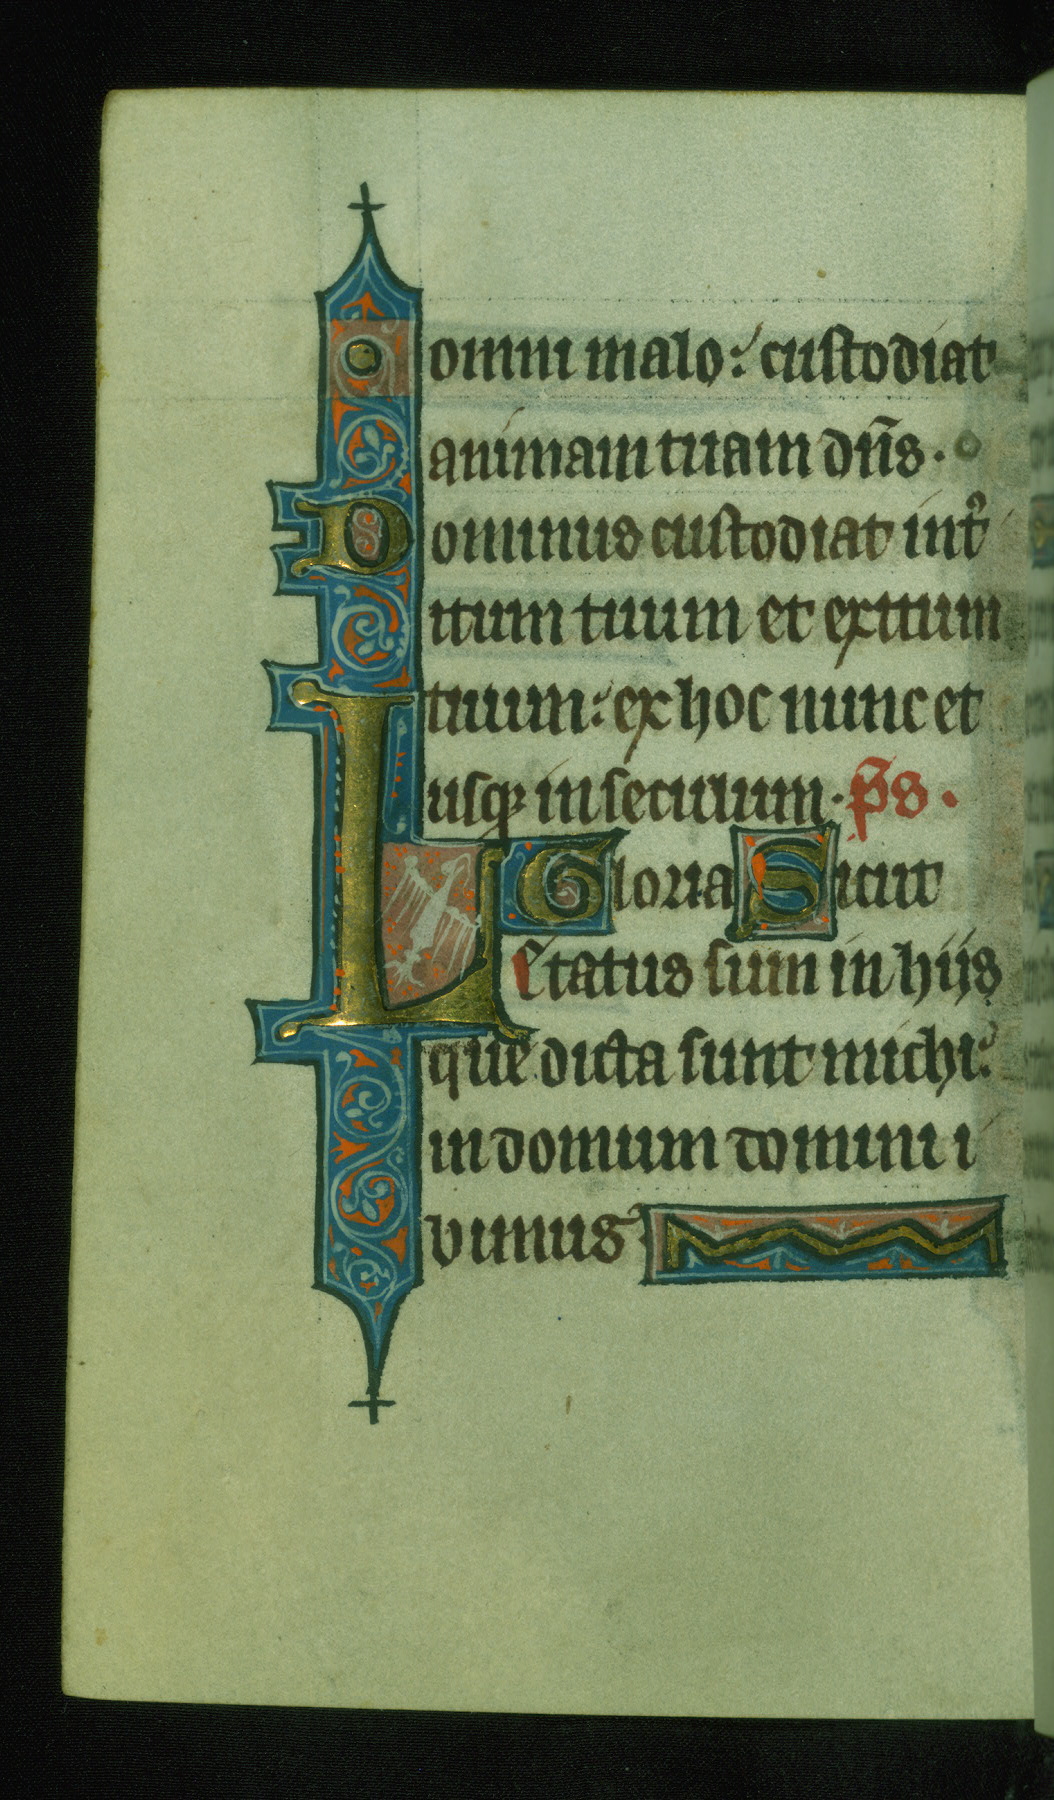 omni malo: custodiat
animam tuam dn̄s.
Dominus custodiat int͛
itum tuum et exitum
tuum: ex hoc nunc et
usq; in seculum. ps.
Gloria Sicut
Letatus sum in hiis
que dicta sunt michi:
in domum domini i
bimus